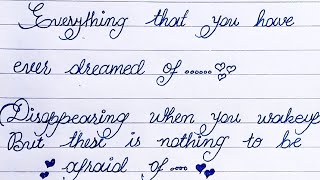 Everything that you have
ever dreamed of......
Disappearing when you wakeys
But thest is nothing to be
afraid of....